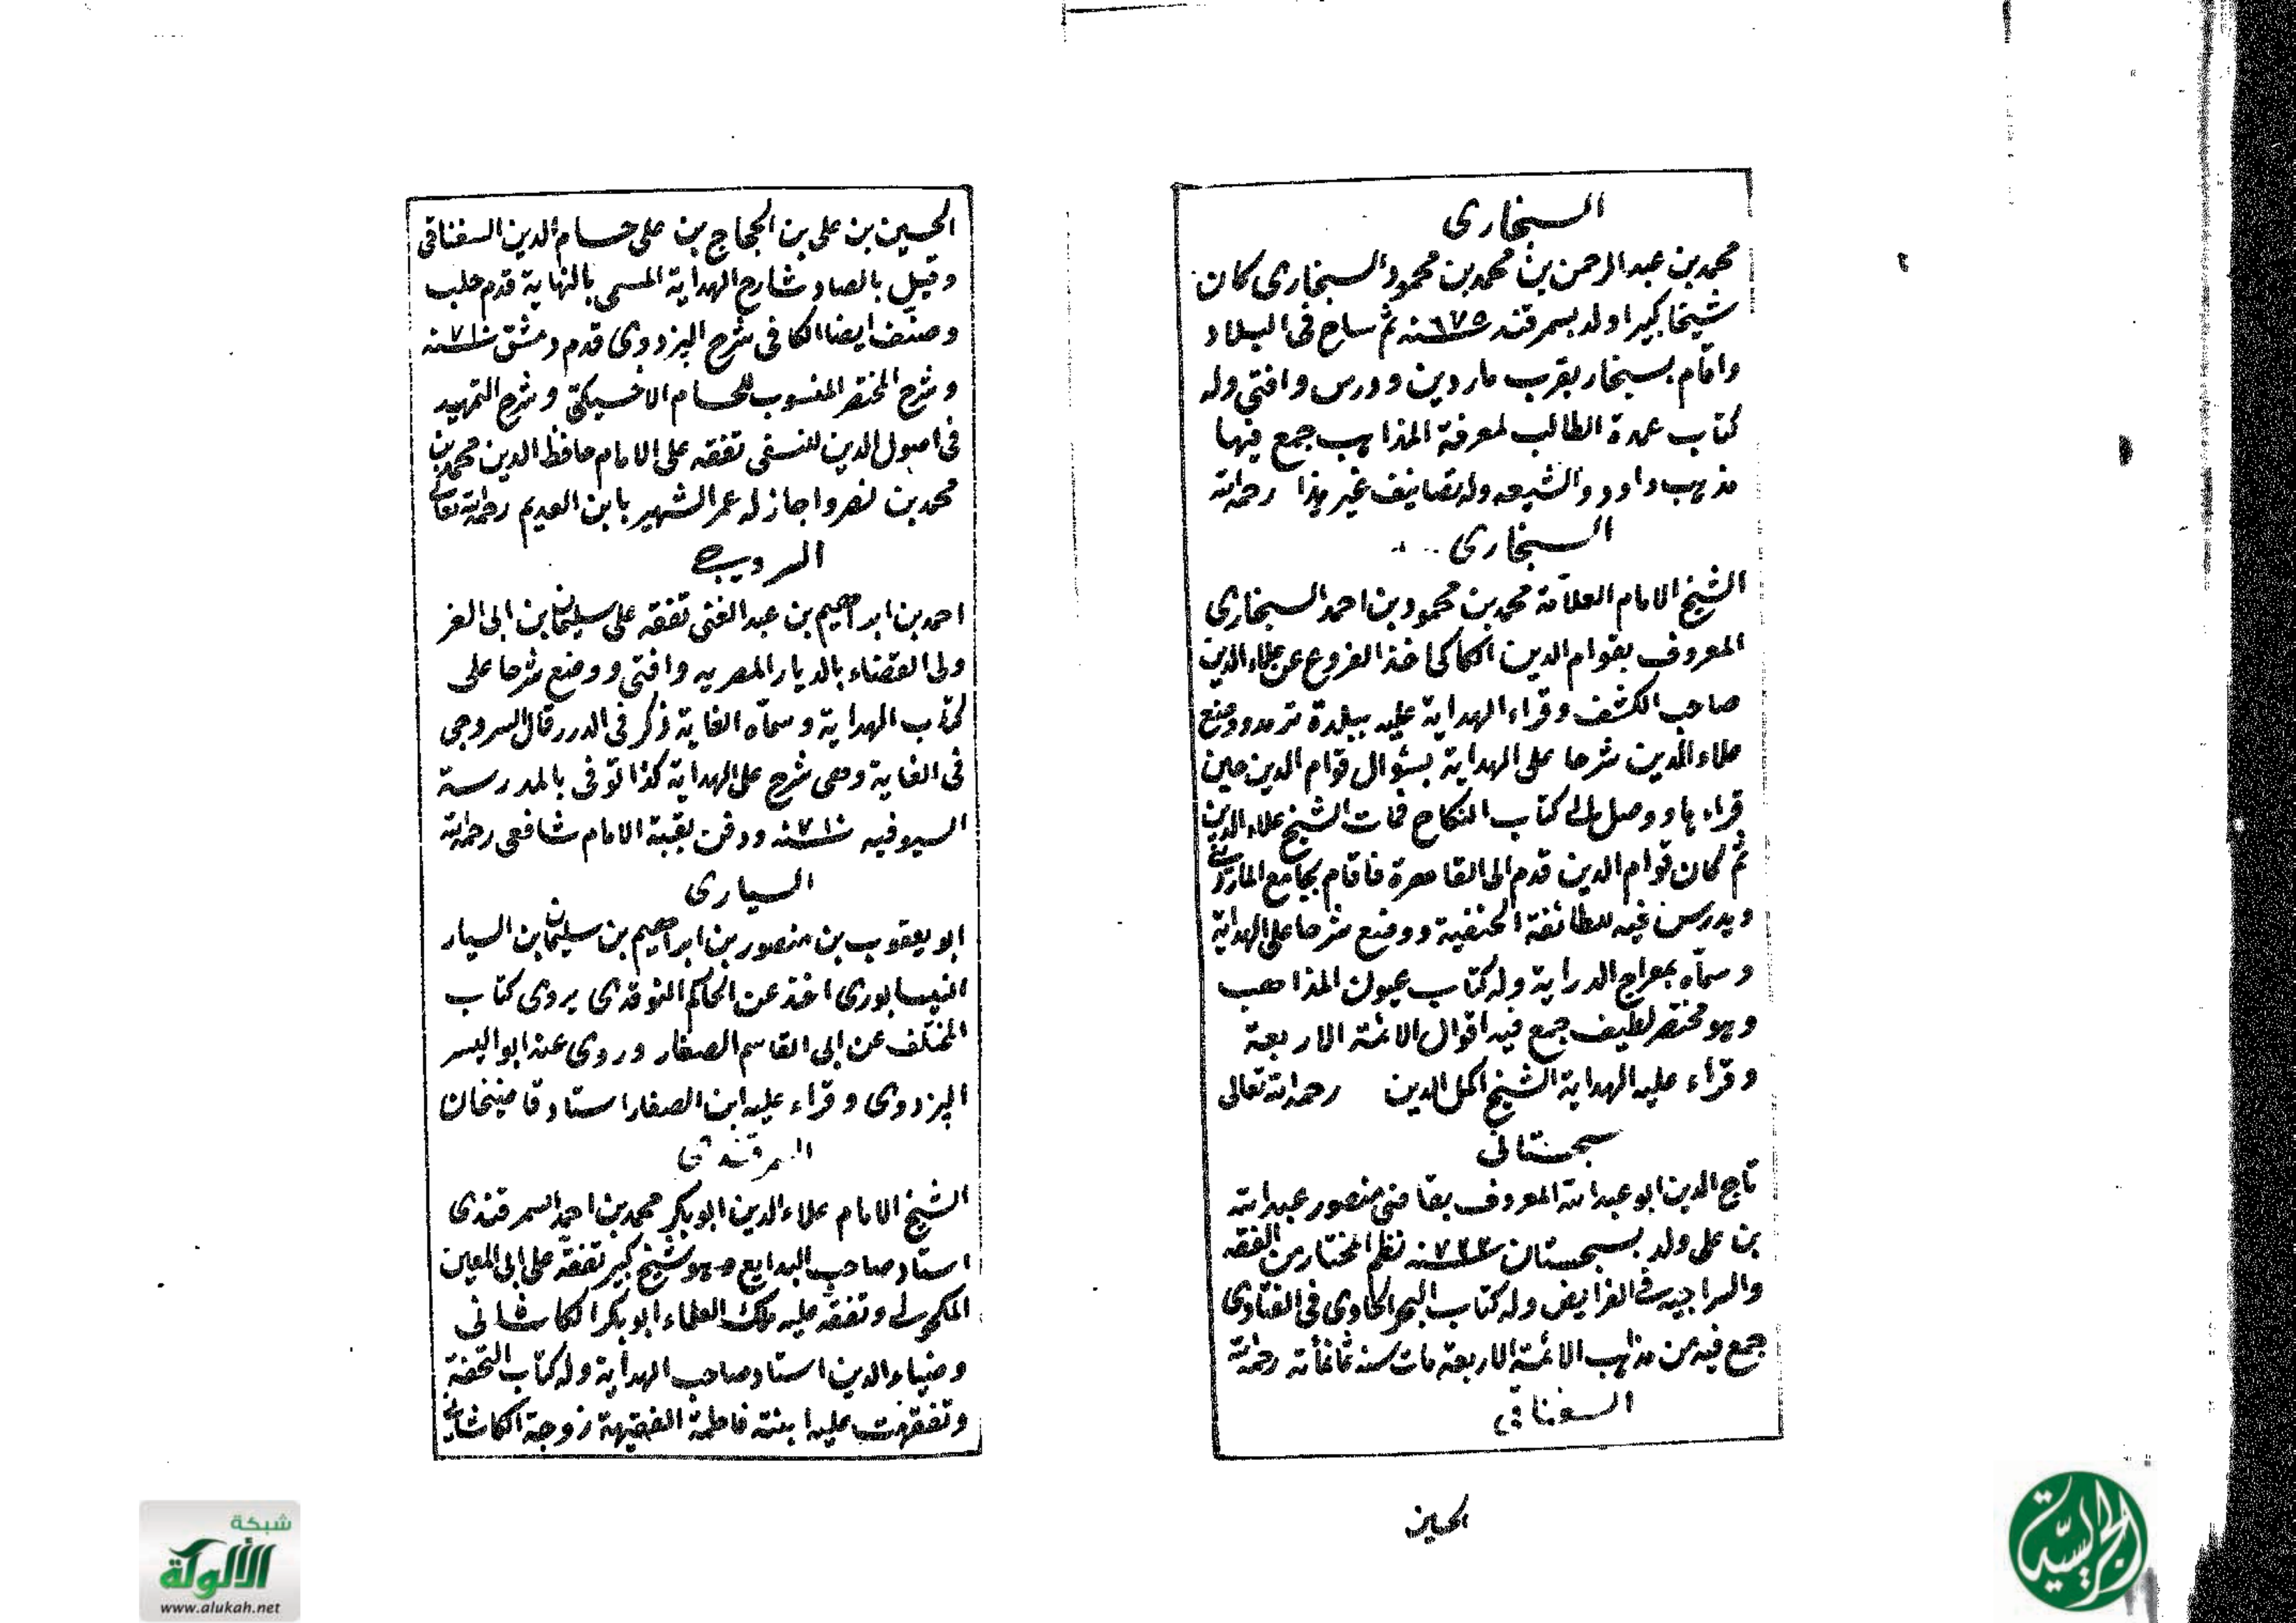 السنجارى
محمد بن عبد الرحمن بن محمد بن محمود السنجارى كان
شيخا كبيرا ولد بسمرقند ٦٧٥ سنه ثم ساح فى البلاد
واقام بسنجار بقرب ماردين ودرس وافتى وله
كتاب عمدة الطالب لمعرفة المذاهب جمع فيها
مذهب داود والشيعه وله تصانيف غير هذا رحمه الله
السنجارى
الشيخ الامام العلامة محمد بن محمود بن احمد السنجارى
المعروف بقوام الدين الكاكى اخذ الفروع عن علاء الدين
صاحب الكشف وقراء الهداية عليه ببلدة ترمد ووضع
علاء الدين شرحا على الهداية بسؤال قوام الدين حين
قراءها ووصل الى كتاب النكاح فمات الشيخ علاء الدين
ثم كان قوام الدين قدم الى القاهرة فاقام بجامع الماردينى
ويدرس فيه للطائفة الحنفية ووضع شرحا على الهداية
وسماه بمعراج الدراية وله كتاب عيون المذاهب
وهو مختصر لطيف جمع فيه اقوال الائمة الاربعة
وقراء عليه الهداية الشيخ اكمل الدين رحمه الله تعالى
سجستانى
تاج الدين ابو عبد الله المعروف بقاضى منصور عبد الله
بن على ولد بسجستان ٧٢٢ سنه نظم المختار من الفقه
والسراجيه فى الفرايض وله كتاب البحر الحاوى فى الفتاوى
جمع فيه من مذاهب الائمة الاربعة مات سنه ثمانمأته رحمه الله
السغناقى
الحسين
الحسين بن على بن الحجاج بن على حسام الدين السغناقى
وقيل بالصاد شارح الهداية المسمى بالنهاية قدم حلب
وصنف ايضا الكافى شرح البزدوى قدم دمشق ٧١٠ سنه
وشرح المختصر المنسوب للحسام الاخسيكتى وشرح التمهيد
فى اصول الدين للنسفى تفقه على الامام حافظ الدين محمد بن
محمد بن نصر واجاز له عمر الشهير بابن العديم رحمه الله تعالى
السروجى
احمد بن ابراهيم بن عبد الغنى تفقه على سليمان بن ابى العز
ولى القضاء بالديار المصريه وافتى ووضع شرحا على
كتاب الهداية وسماه الغاية ذكر فى الدرر قال السروجى
فى الغاية وهى شرح على الهداية كذا توفى بالمدرسة
السيوفيه ٧١٠ سنه ودفن بقبة الامام شافعى رحمه الله
السيارى
ابو يعقوب بن منصور بن ابراهيم بن سليمان بن السيار
النيسابورى اخذ عن الحاكم النوقدى يروى كتاب
المختلف عن ابى القاسم الصفار وروى عنه ابو اليسر
البزدوى وقراء عليه ابن الصفار استاد قاضيخان
السمرقندى
الشيخ الامام علاء الدين ابو بكر محمد بن احمد السمرقندى
استاد صاحب البدايع وهو شيخ كبير تفقه على ابى المعين
المكحولى وتفقه عليه ملك العلماء ابو بكر الكاشانى
وضياء الدين استاد صاحب الهداية وله كتاب التحفة
وتفقهت عليه ابنته فاطمة الفقيهة زوجة الكاشانى
شبكة
الألوكة
www.alukah.net